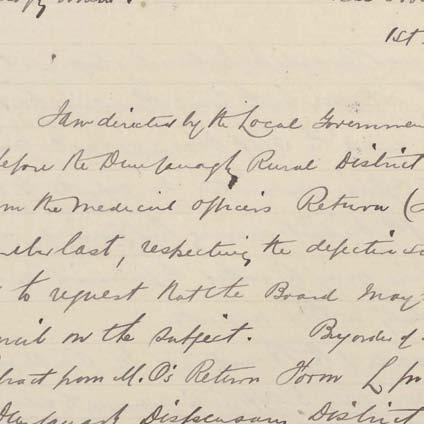 1st
I am directed by the Local Governmen
before the Dunfanaghy Rural District
om the Medical Officers Return (
last, respecting the defective
to request that the Board may
ncil on the subject. By order of
tract from M.O's Return Form L
Dunfanaghy Dispensary District